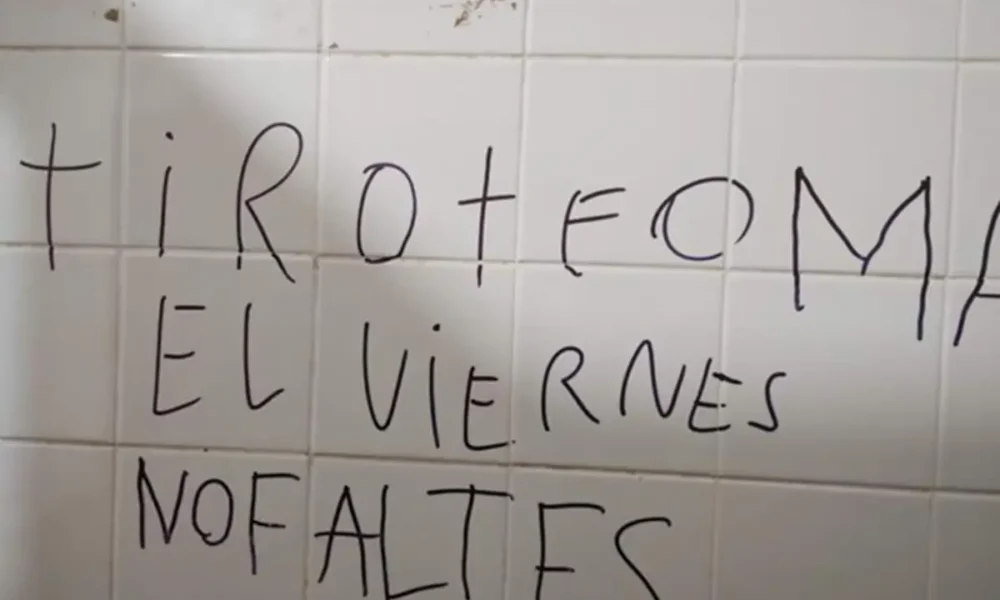 TiROTEO MA
EL ViERNES
NO FALTES